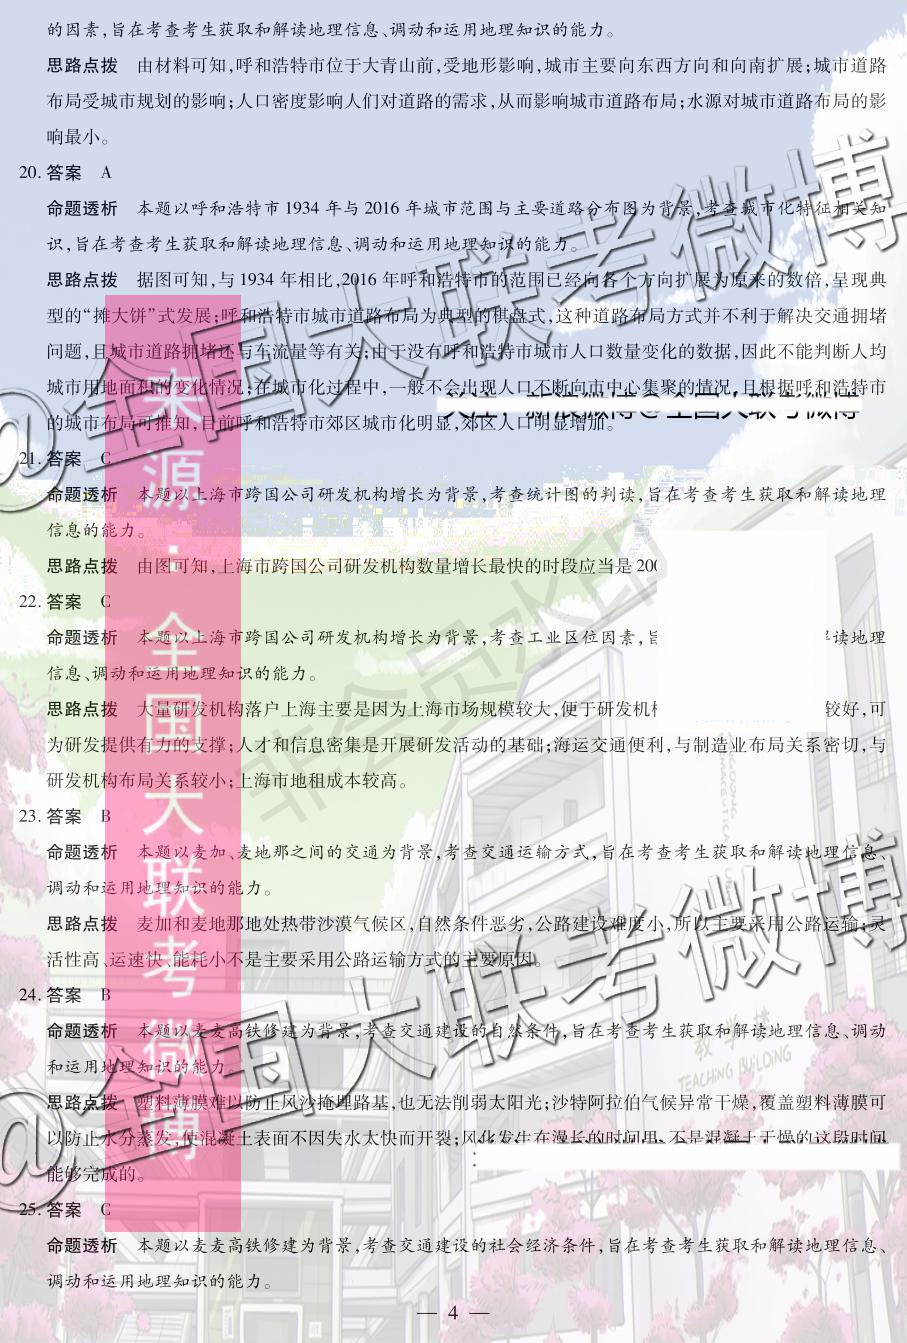 的因素,旨在考查考生获取和解读地理信息、调动和运用地理知识的能力。
思路点拨 由材料可知,呼和浩特市位于大青山前,受地形影响,城市主要向东西方向和向南扩展;城市道路
布局受城市规划的影响;人口密度影响人们对道路的需求,从而影响城市道路布局;水源对城市道路布局的影
响最小。
20. 答案 A
命题透析 本题以呼和浩特市1934年与2016年城市范围与主要道路分布图为背景,考查城市化特征相关知
识,旨在考查考生获取和解读地理信息、调动和运用地理知识的能力。
思路点拨 据图可知,与1934年相比,2016年呼和浩特市的范围已经向各个方向扩展为原来的数倍,呈现典
型的“摊大饼”式发展;呼和浩特市城市道路布局为典型的棋盘式,这种道路布局方式并不利于解决交通拥堵
问题,且城市道路拥堵还与车流量等有关;由于没有呼和浩特市城市人口数量变化的数据,因此不能判断人均
城市用地面积的变化情况;在城市化过程中,一般不会出现人口不断向市中心集聚的情况,且根据呼和浩特市
关注:新浪微博@全国大联考微博
的城市布局可推知,目前呼和浩特市郊区城市化明显,郊区人口明显增加。
@全国大联考微博
21. 答案 C
命题透析 本题以上海市跨国公司研发机构增长为背景,考查统计图的判读,旨在考查考生获取和解读地理
信息的能力。
思路点拨 由图可知,上海市跨国公司研发机构数量增长最快的时段应当是200
22. 答案 C
命题透析 本题以上海市跨国公司研发机构增长为背景,考查工业区位因素,旨 解读地理
信息、调动和运用地理知识的能力。
思路点拨 大量研发机构落户上海主要是因为上海市场规模较大,便于研发机 较好,可
为研发提供有力的支撑;人才和信息密集是开展研发活动的基础;海运交通便利,与制造业布局关系密切,与
研发机构布局关系较小;上海市地租成本较高。
非会员水印
来源:全国大联考微博
23. 答案 B
命题透析 本题以麦加、麦地那之间的交通为背景,考查交通运输方式,旨在考查考生获取和解读地理信息、
调动和运用地理知识的能力。
思路点拨 麦加和麦地那地处热带沙漠气候区,自然条件恶劣,公路建设难度小,所以主要采用公路运输;灵
活性高、运速快、能耗小不是主要采用公路运输方式的主要原因。
24. 答案 B
命题透析 本题以麦麦高铁修建为背景,考查交通建设的自然条件,旨在考查考生获取和解读地理信息、调动
和运用地理知识的能力。
教学楼
TEACHING BUILDING
思路点拨 塑料薄膜难以防止风沙掩埋路基,也无法削弱太阳光;沙特阿拉伯气候异常干燥,覆盖塑料薄膜可
以防止水分蒸发,使混凝土表面不因失水太快而开裂;风化发生在漫长的时间里,不是混凝土干燥的这段时间
能够完成的。
@全国大联考微博
25. 答案 C
命题透析 本题以麦麦高铁修建为背景,考查交通建设的社会经济条件,旨在考查考生获取和解读地理信息、
调动和运用地理知识的能力。
— 4 —